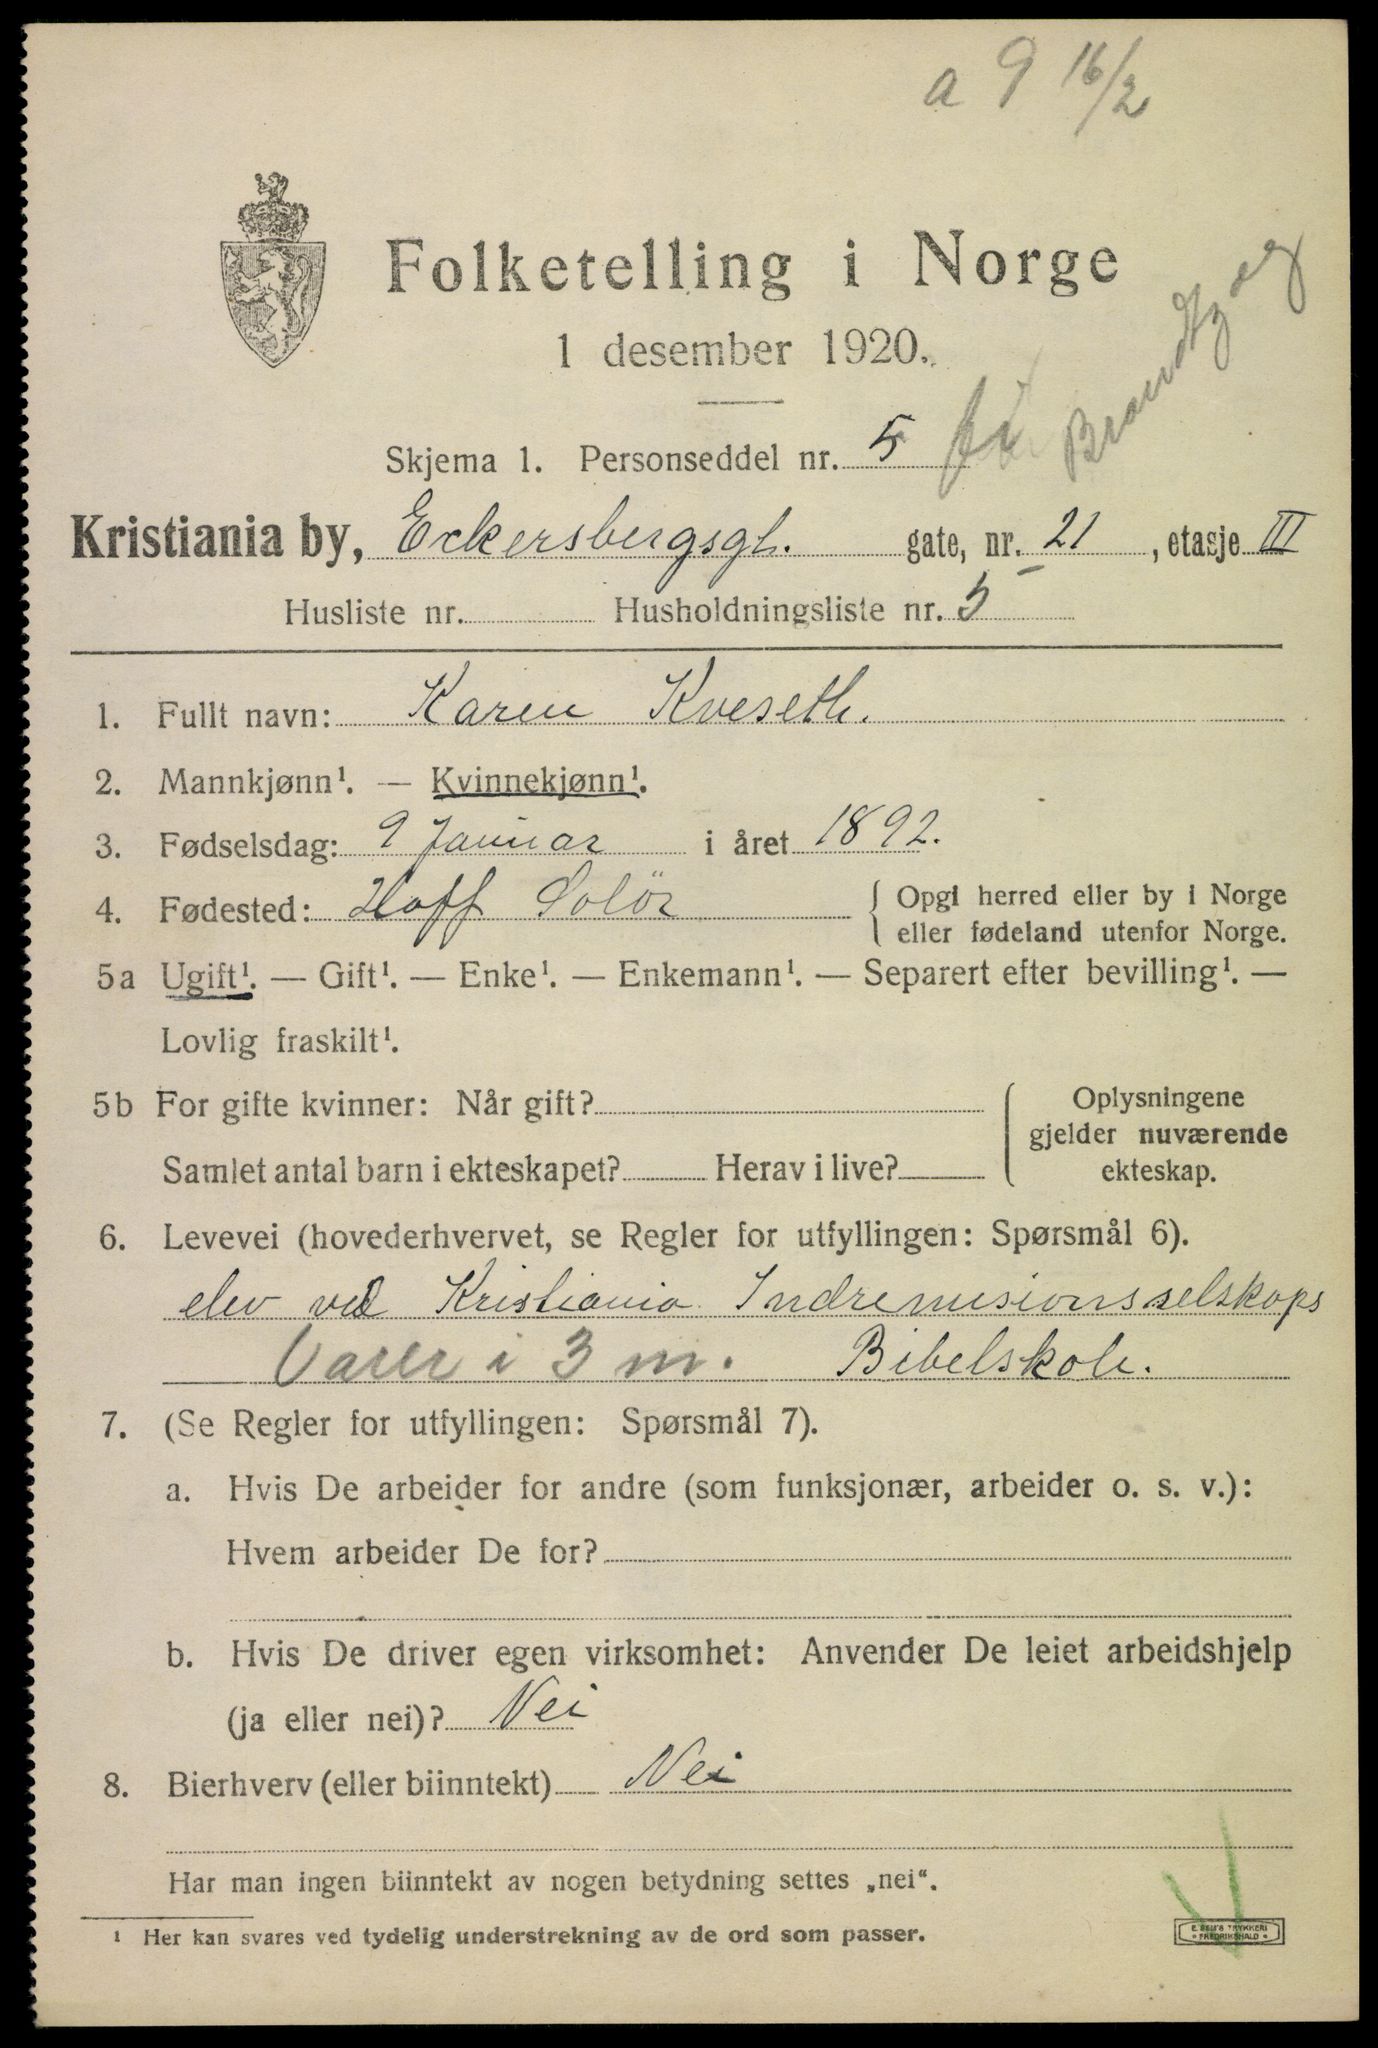 a 9 16/2
Folketelling i Norge
1 desember 1920.
Brandtzæg
Skjema 1. Personseddel nr. 5
Kristiania by, Eckersbergsgt. gate, nr. 21, etasje III
Husliste nr. Husholdningsliste nr. 5
1. Fullt navn: Karen Kveseth.
2. Mannkjønn¹. — Kvinnekjønn¹.
3. Fødselsdag: 9 Januar i året 1892.
4. Fødested: Hoff Solör { Opgi herred eller by i Norge
eller fødeland utenfor Norge.
5a Ugift¹. — Gift¹. — Enke¹. — Enkemann¹. — Separert efter bevilling¹. —
Lovlig fraskilt¹.
5b For gifte kvinner: Når gift? { Oplysningene
gjelder nuværende
Samlet antal barn i ekteskapet? Herav i live? ekteskap.
6. Levevei (hovederhvervet, se Regler for utfyllingen: Spørsmål 6).
elev ved Kristiania Indremisionsselskaps
Varer i 3 m. Bibelskole.
7. (Se Regler for utfyllingen: Spørsmål 7).
a. Hvis De arbeider for andre (som funksjonær, arbeider o. s. v.):
Hvem arbeider De for?
b. Hvis De driver egen virksomhet: Anvender De leiet arbeidshjelp
(ja eller nei)? Nei
8. Bierhverv (eller biinntekt) Nei
Har man ingen biinntekt av nogen betydning settes „nei“.
¹ Her kan svares ved tydelig understrekning av de ord som passer.
E. SEM'S TRYKKERI
• FREDRIKSHALD •